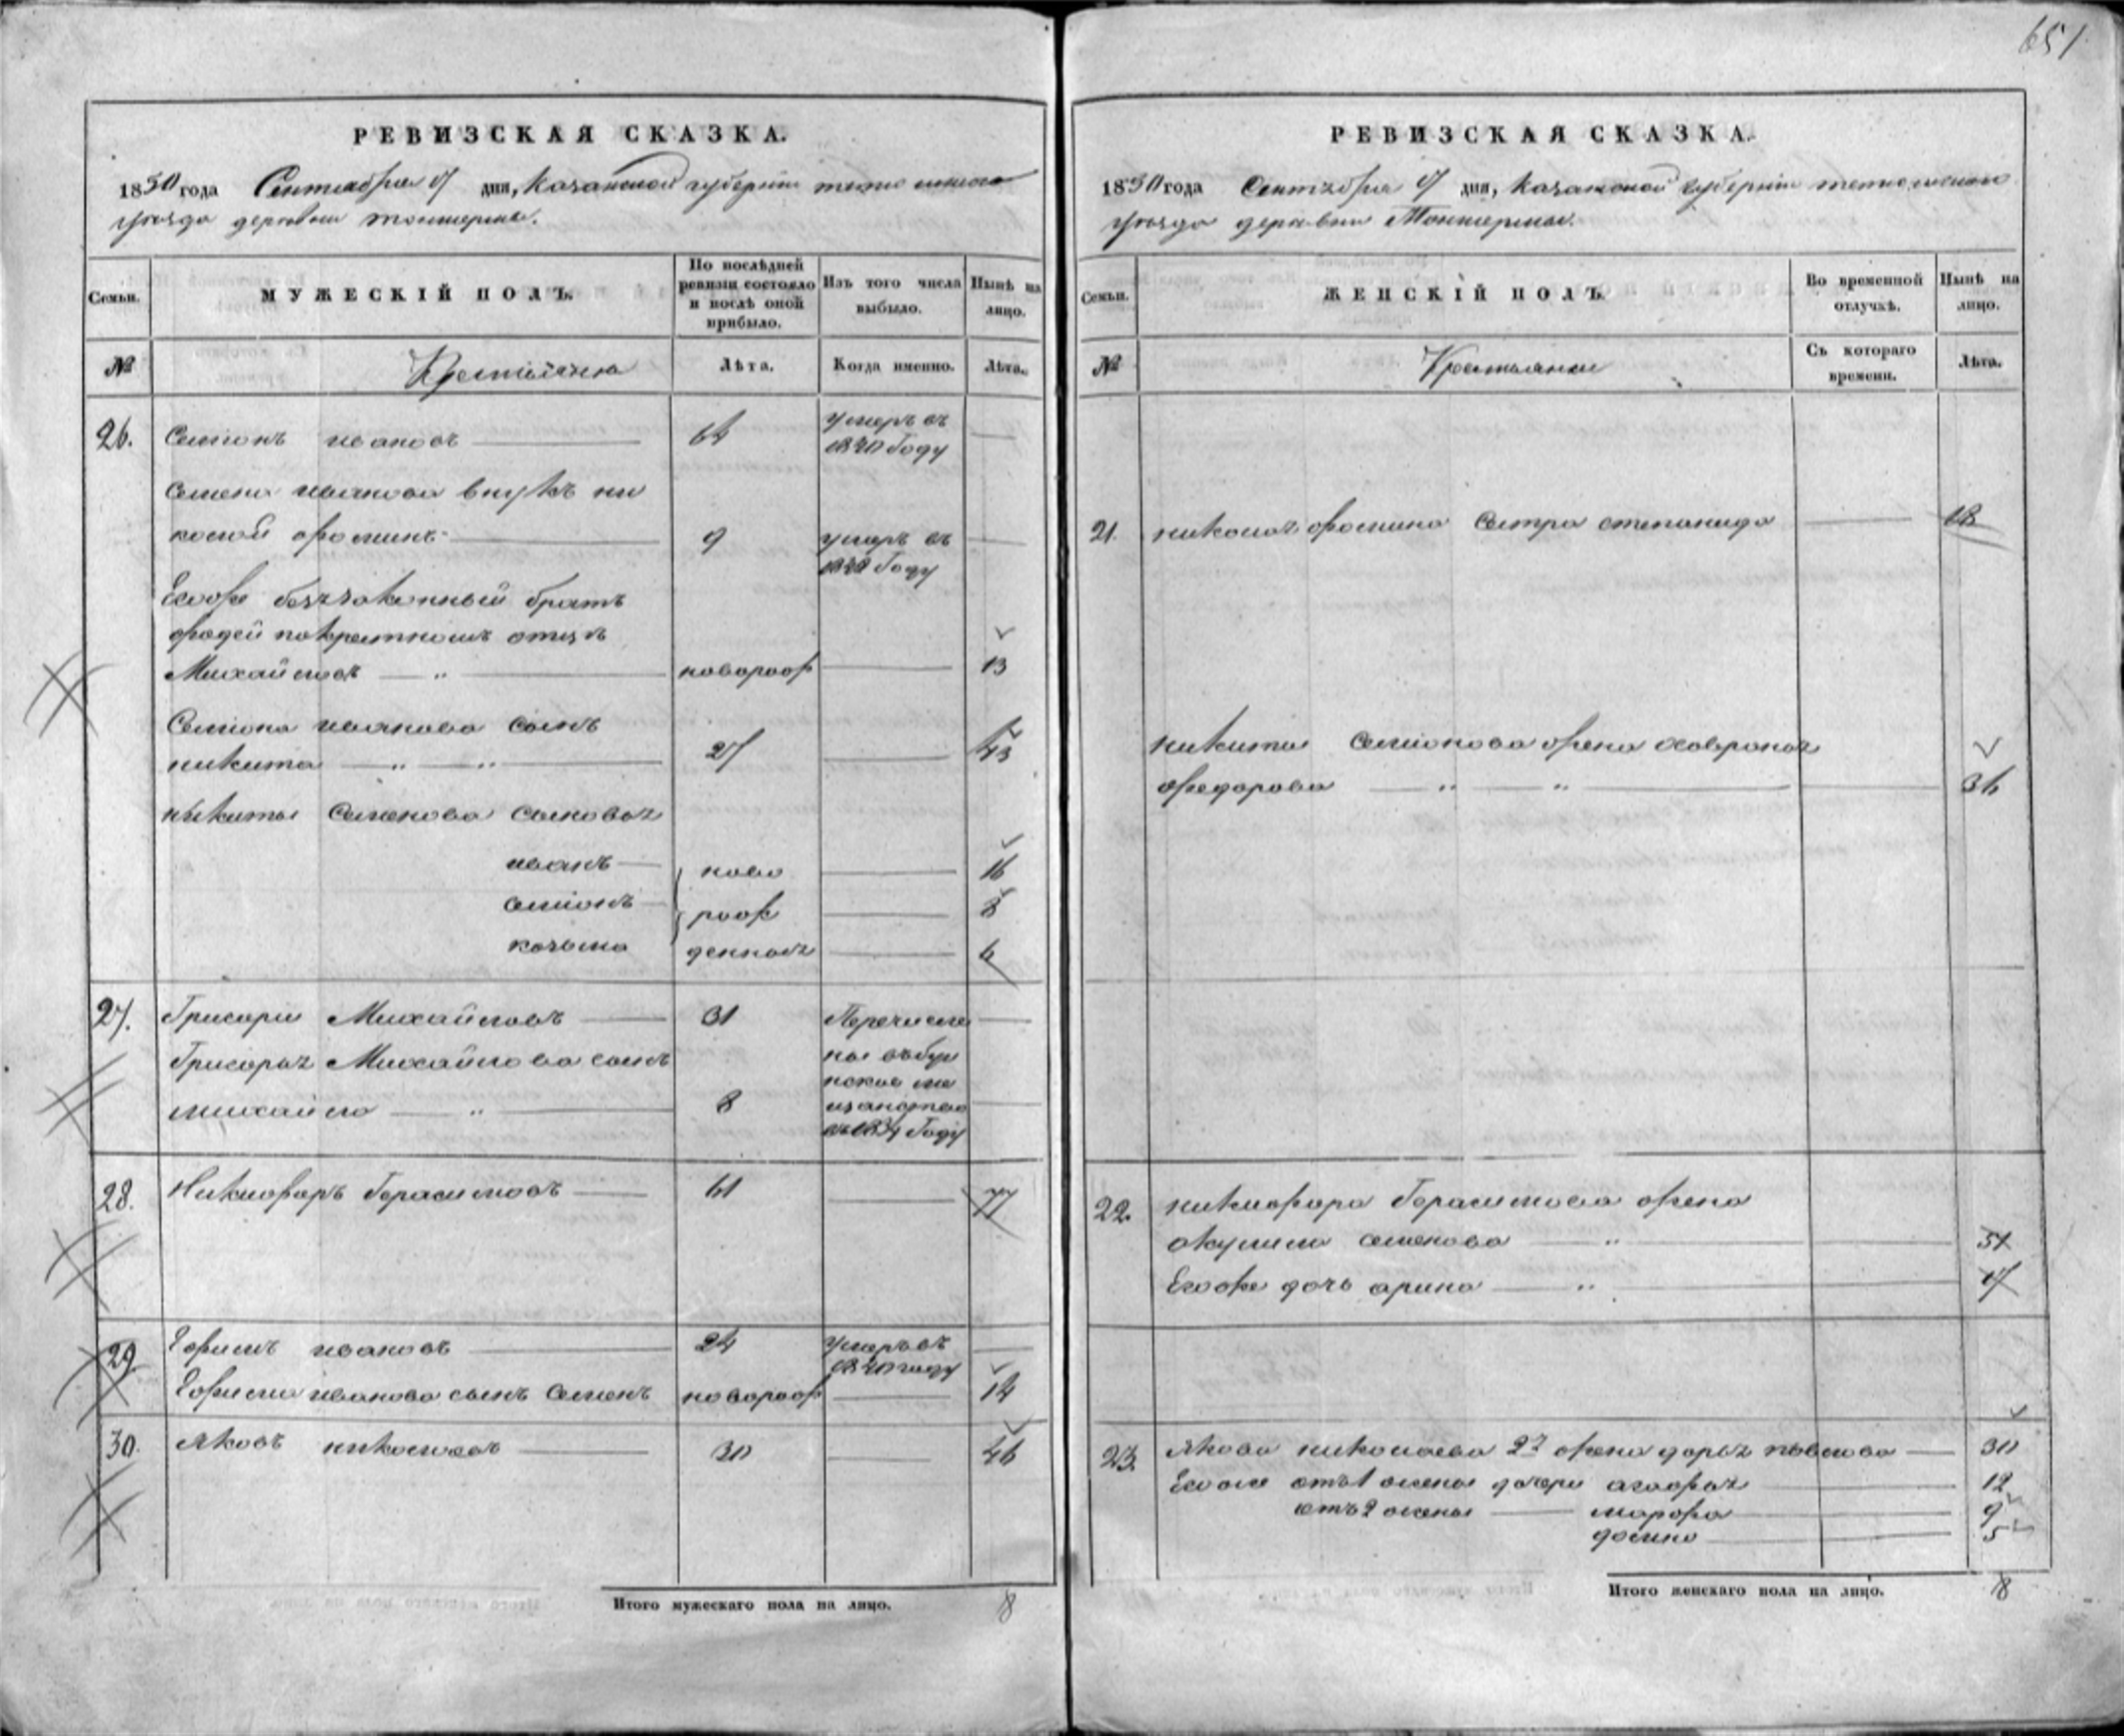 651
РЕВИЗСКАЯ СКАЗКА.
1850 года Сентября 7 дня, Казанской губернiи тетюшскаго
уѣзда деревни
Семьи.
МУЖЕСКІЙ ПОЛЪ.
По послѣдней ревизіи состояло и послѣ оной прибыло.
Изъ того числа выбыло.
Нынѣ на лицо.
№
Крестьяне
Лѣта.
Когда именно.
Лѣта.
26. Семионъ ивановъ 64 умеръ въ
1840 Году
Семена иванова внукъ ни
колай фоминъ 9 умеръ въ
Году
Егоже беззаконный братъ
фадей покрестному отцѣ
Михайловъ новорож 13
Семиона иванова сынъ
никита 27 43
никиты Семенова сыновья
иванъ ново 16
семионъ рож 8
козьма денныя 6
27. Григори Михайловъ 31 Перечисле
Григорья Михайлова сынъ ны въ
михайло 8
въ 1834 Году
28. Никифоръ Герасимовъ 61 77
29. Ефимъ ивановъ 24 умеръ въ
1840 году
Ефима иванова сынъ Семенъ новорож 14
30. Яковъ николаевъ 30 46
Итого мужескаго пола на лицо. 8
РЕВИЗСКАЯ СКАЗКА.
1850 года Сентября 7 дня, Казанской губернiи тетюшскаго
уѣзда деревни
Семьи.
ЖЕНСКІЙ ПОЛЪ.
Во временной отлучкѣ.
Нынѣ на лицо.
№
Крестьянки
Съ котораго времени.
Лѣта.
21. николая фомина сестра степанида 18
никиты Семионова жена хавронья
федорова 36
22. никифора Герасимова жена
акулина семенова
Егоже дочь арина 17
23. Якова николаева 2я жена дарья павлова 30
Егоже отъ 1 жены дочери агафья 12
отъ 2 жены марфа 9
домна 5
Итого женскаго пола на лицо. 8